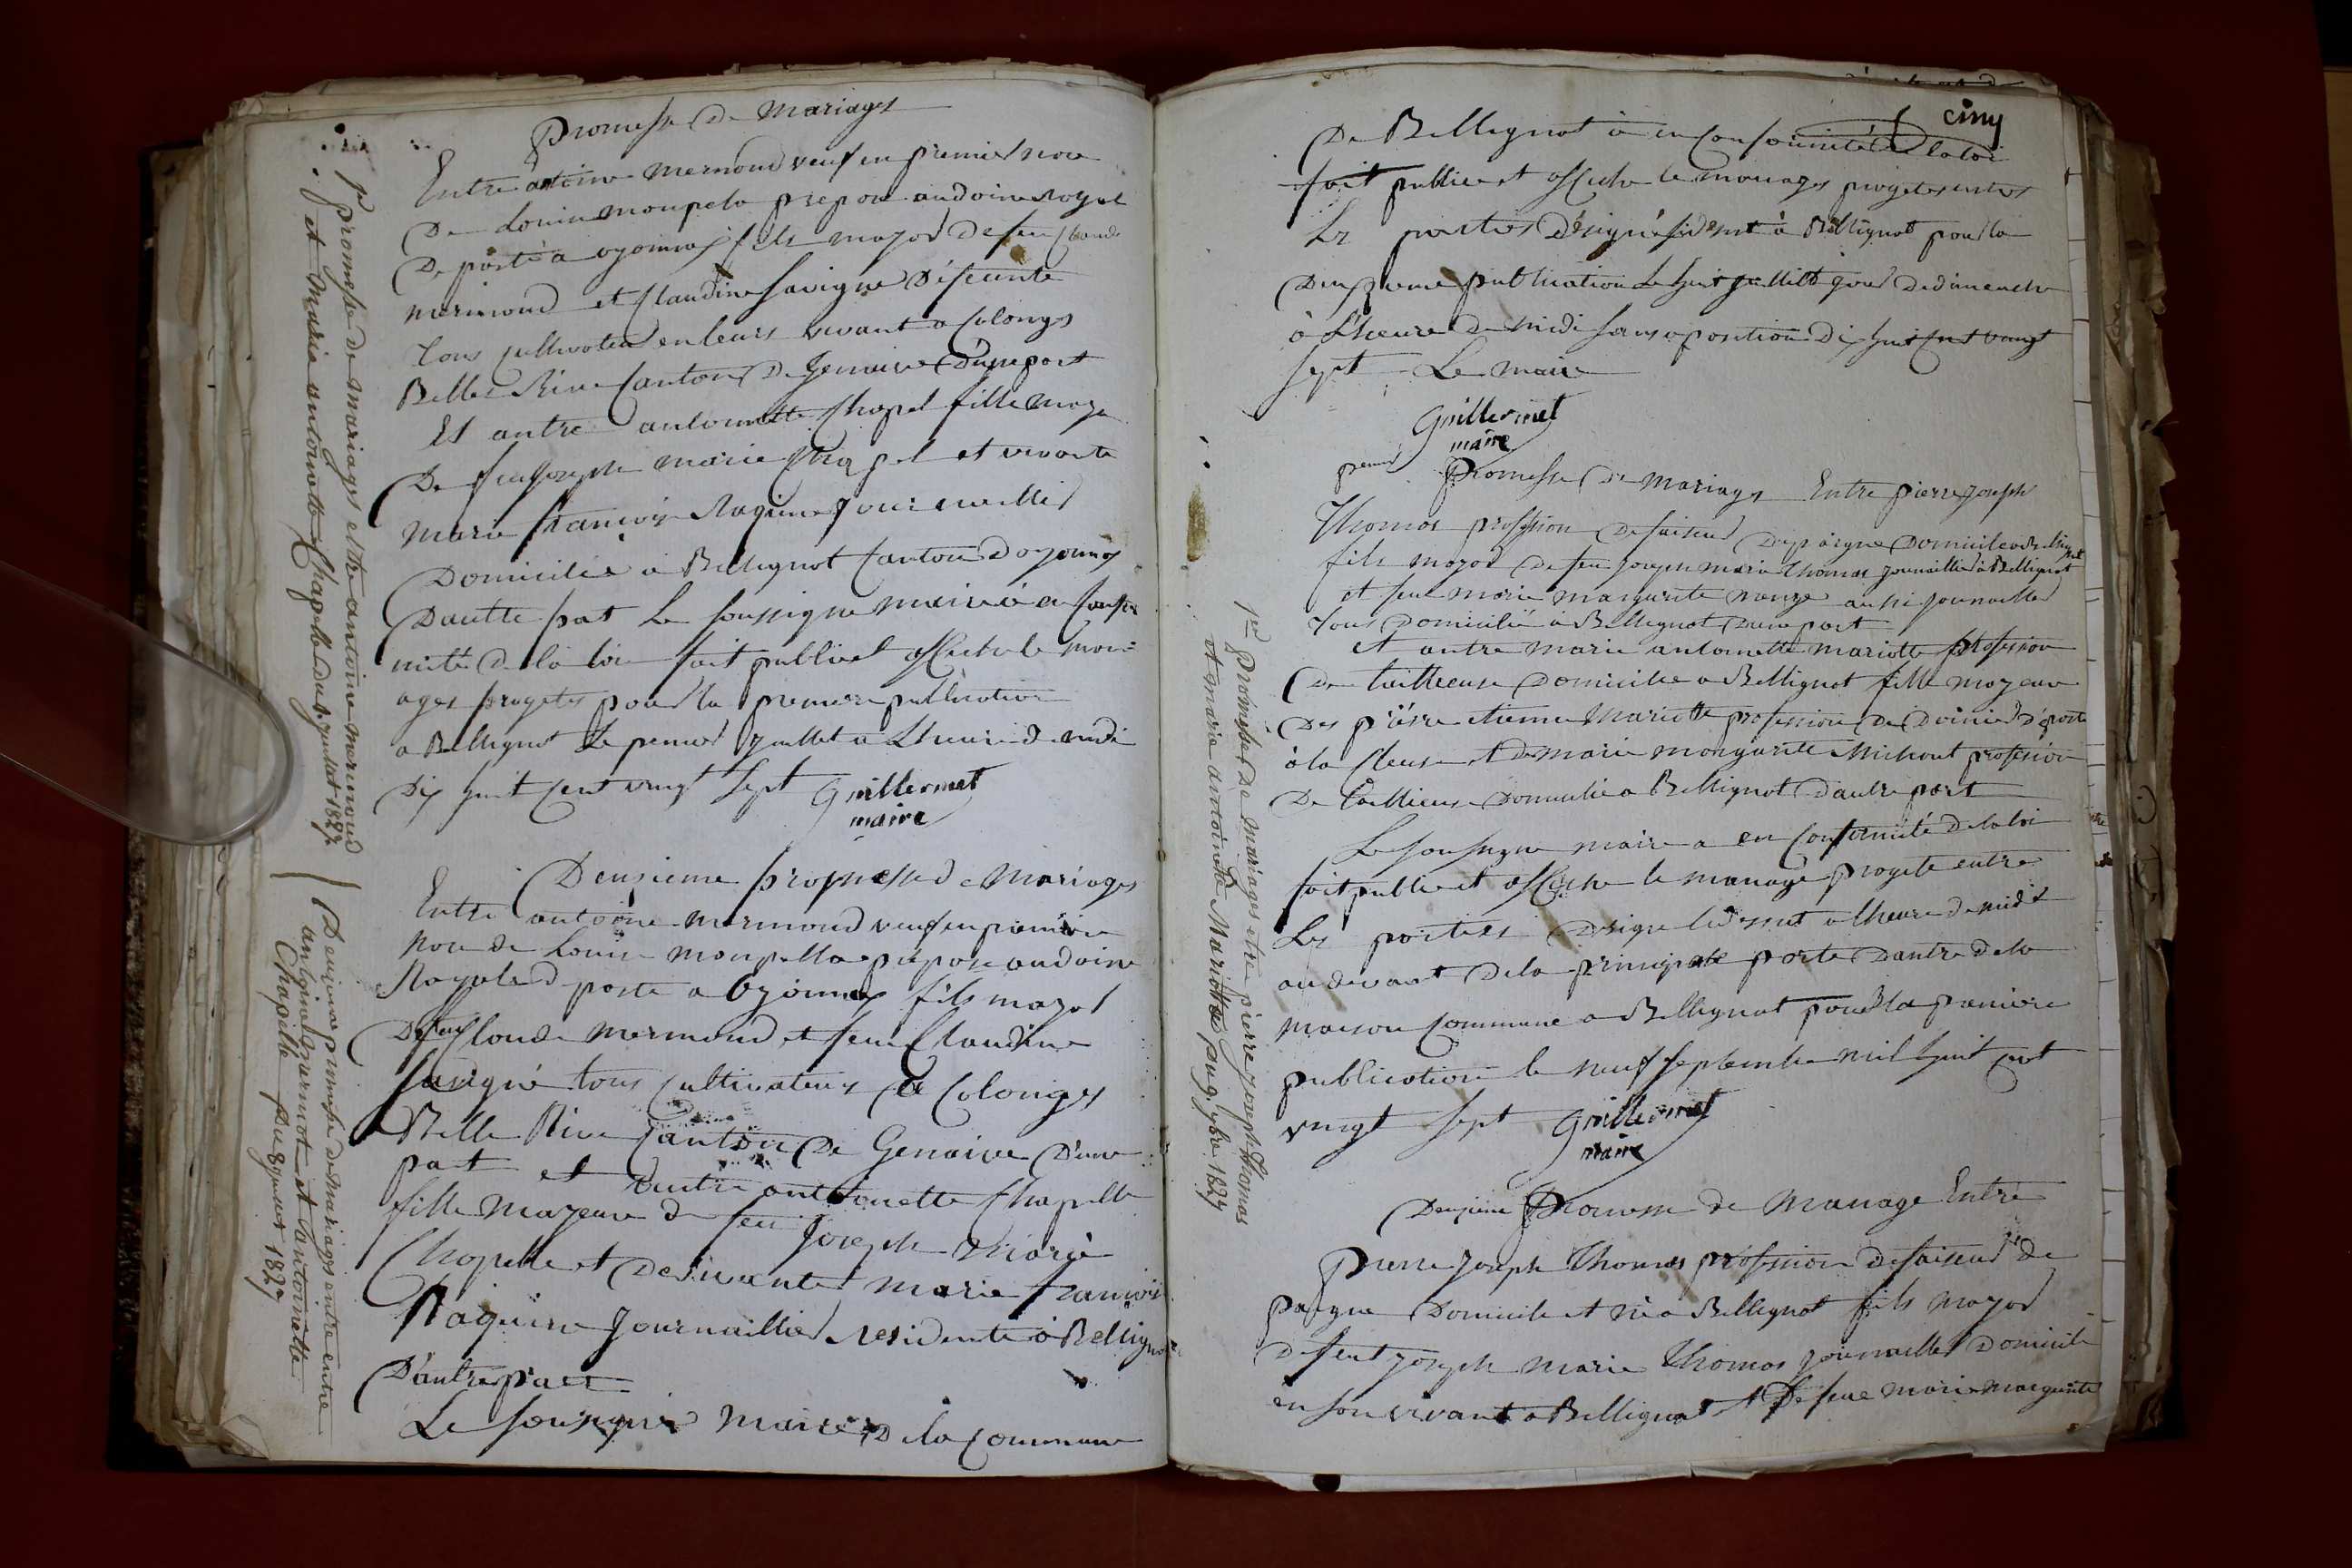 Promesse De Mariages
Entre antoine mermond veuf en premier noce
De Louise monpela prepose au doine Royal
De poste a oyonnax fils major de feu Claude
mermoud et Claudine Savigne Défeunte
Tous cultivateu en leurs vivant a Colonges
Belles Rive Canton De Genaive D'une part
Et autre antoinette Chapel fille maje
De feu Joseph marie Chapel et vivante
Marie francois Raquine Journaillier
Domicilié a Bellignot Canton doyonnax
Dautte part Le Soussigne maire à en Confor
mité De la loi fait publiet afficher le mari=
ages progetes pour la premiere publication
a Bellignot Le premier Juillet a Lheure de midi
Dix huit Cent vingt Sept Guillermet
maire
Deusieme promesse de Mariages
Entre antoine mermoud veuf en premiere
noce de Louise monpella prepose au doine
Royale d poste a Oyonnax fils major
De feu Cloude mermoud et feue Claudine
Savigné tous cultivateurs a Colonges
Belle Rive Canton De Genaive D'une
part et Dautre antoinette Chapelle
fille majeure de feu Joseph Marie
Chopelle et De vivante marie francois
Raquine Journaillier residente à Bellignot
D'autre part
Le Soussigné Maire De la Commune
pr promesse de mariages entre antoine mermoud
et Marie antoinette Chapelle du 1 juillet 1827
Deuxieme promesse de mariages entre entre
et antoinette
Chapelle Du 8 juillet 1827
cinq
De Bellignot à en Conformité de la loi
fait publier et afficher le mariages progetes entres
Les parties Désigné sident à Bellignot pour la
Deuxieme publication Le huit Juillet jour De dimenche
à L'heure De midi sans oposition Dix huit Cent vingt
Sept Le maire
Guillermet
maire
premier Promesse De Mariages Entre pierre Joseph
Thomas profession De faiseur De paigne Domicile a Bellignot
fils major De feu Joseph marie Thomas Journaillier à Bellignot
et feue marie margurite aussi Journaillier
Tous Domicilié à Bellignot D'une part
et autre marie antoinette mariotte profession
De tailleuse Domicilie a Bellignot fille majeure
Des pière etienne Mariotte profession De Doinier D'poste
à la Cleuse et De marie margurite Michout profession
De tailleuse Domicilié a Bellignot D'autre part
Le Soussigne maire a en Conformité De la loi
fait publie et afficher le mariage progete entre
Les parties Designe a lheure De midi
au devant De la principale porte Dantre De la
maison Commune a Bellignat pour la premiere
publication le neuf Septembre mil huit cent
vingt Sept Guillermet
maire
Deuxieme Promesse de Mariage Entre
pierre Joseph Thomas profession De faiseur de
paigne Domicile et né a Bellignat fils major
De feut Joseph Marie Thomas Journaillier Domicile
en son vivant a Bellignat et De feue marie margurite
1er Promesse De Mariages etre pierre Joseph Thomas
et marie antoinette Mariotte Du 9 7bre 1827